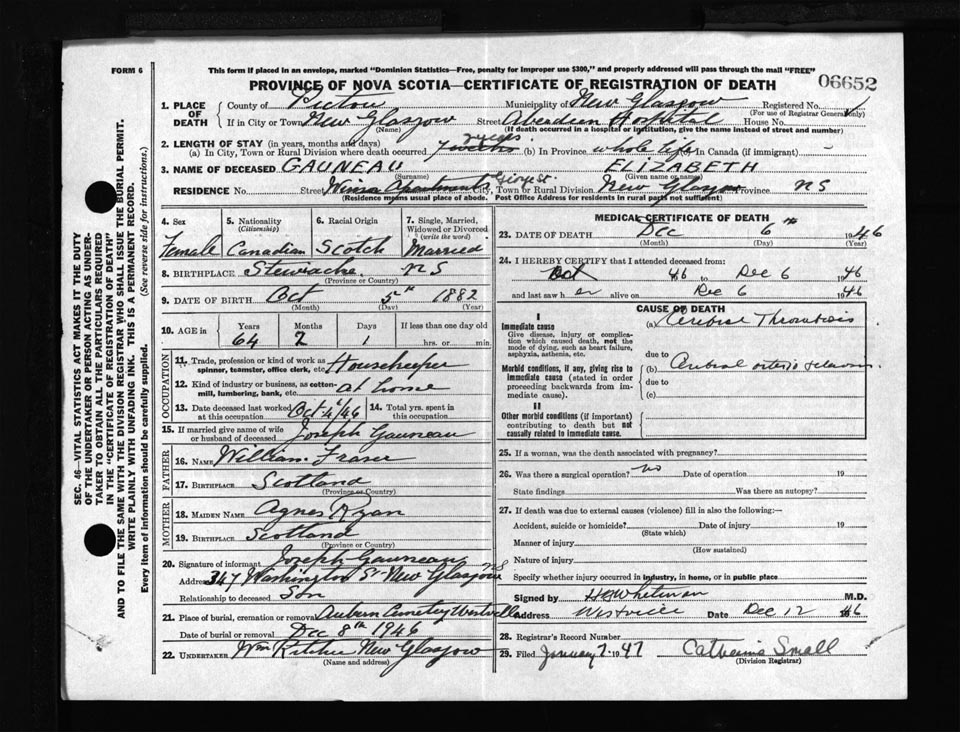 FORM 6
This form if placed in an envelope, marked "Dominion Statistics—Free, penalty for improper use $300," and properly addressed will pass through the mail "FREE"
PROVINCE OF NOVA SCOTIA—CERTIFICATE OF REGISTRATION OF DEATH
06652
1. PLACE OF DEATH
County of Pictou Municipality of New Glasgow Registered No.
(For use of Registrar General only)
If in City or Town New Glasgow Street Aberdeen Hospital House No.
(Name) (If death occurred in a hospital or institution, give the name instead of street and number)
2. LENGTH OF STAY (in years, months and days)
(a) In City, Town or Rural Division where death occurred (b) In Province whole life (c) In Canada (if immigrant) —
3. NAME OF DECEASED GAUNEAU ELIZABETH
(Surname) (Given name or names)
RESIDENCE No. Street Apartments George St. City, Town or Rural Division New Glasgow Province NS
(Residence means usual place of abode. Post Office Address for residents in rural parts not sufficient)
4. Sex Female
5. Nationality (Citizenship) Canadian
6. Racial Origin Scotch
7. Single, Married, Widowed or Divorced (write the word) Married
8. BIRTHPLACE Stewiacke. NS
(Province or Country)
9. DATE OF BIRTH Oct 5th 1882
(Month) (Day) (Year)
10. AGE in Years 64 Months 2 Days 1 If less than one day old hrs. or min.
OCCUPATION
11. Trade, profession or kind of work as spinner, teamster, office clerk, etc. Housekeeper
12. Kind of industry or business, as cotton-mill, lumbering, bank, etc. at home
13. Date deceased last worked at this occupation Oct 4/46
14. Total yrs. spent in this occupation
15. If married give name of wife or husband of deceased Joseph Gauneau
FATHER
16. NAME William Fraser
17. BIRTHPLACE Scotland
(Province or Country)
MOTHER
18. MAIDEN NAME Agnes Ryan
19. BIRTHPLACE Scotland
(Province or Country)
20. Signature of informant Joseph Gauneau
Address 347 Washington St New Glasgow NS
Relationship to deceased Son
21. Place of burial, cremation or removal Auburn Cemetery Westville
Date of burial or removal Dec 8th 1946
22. UNDERTAKER Wm Ritchie New Glasgow
(Name and address)
MEDICAL CERTIFICATE OF DEATH
23. DATE OF DEATH Dec 6th 1946
(Month) (Day) (Year)
24. I HEREBY CERTIFY that I attended deceased from:
Oct 46 to Dec 6 1946
and last saw h er alive on Dec 6 1946
CAUSE OF DEATH
I
Immediate cause
Give disease, injury or complication which caused death, not the mode of dying, such as heart failure, asphyxia, asthenia, etc.
(a) Cerebral Thrombosis
due to
Morbid conditions, if any, giving rise to immediate cause (stated in order proceeding backwards from immediate cause).
(b) Cerebral
due to
(c)
II
Other morbid conditions (if important) contributing to death but not causally related to immediate cause.
25. If a woman, was the death associated with pregnancy?
26. Was there a surgical operation? no Date of operation 19
State findings Was there an autopsy?
27. If death was due to external causes (violence) fill in also the following:—
Accident, suicide or homicide? Date of injury 19
(State which)
Manner of injury
(How sustained)
Nature of injury
Specify whether injury occurred in industry, in home, or in public place
Signed by Whitman M.D.
Address Westville Date Dec 12 46
28. Registrar's Record Number
29. Filed January 7. 1947 Catherine Small
(Division Registrar)
SEC. 46—VITAL STATISTICS ACT MAKES IT THE DUTY
OF THE UNDERTAKER OR PERSON ACTING AS UNDER-
TAKER TO OBTAIN ALL THE PARTICULARS REQUIRED
IN THE "CERTIFICATE OF REGISTRATION OF DEATH"
AND TO FILE THE SAME WITH THE DIVISION REGISTRAR WHO SHALL ISSUE THE BURIAL PERMIT.
WRITE PLAINLY WITH UNFADING INK. THIS IS A PERMANENT RECORD.
Every item of information should be carefully supplied. (See reverse side for instructions.)